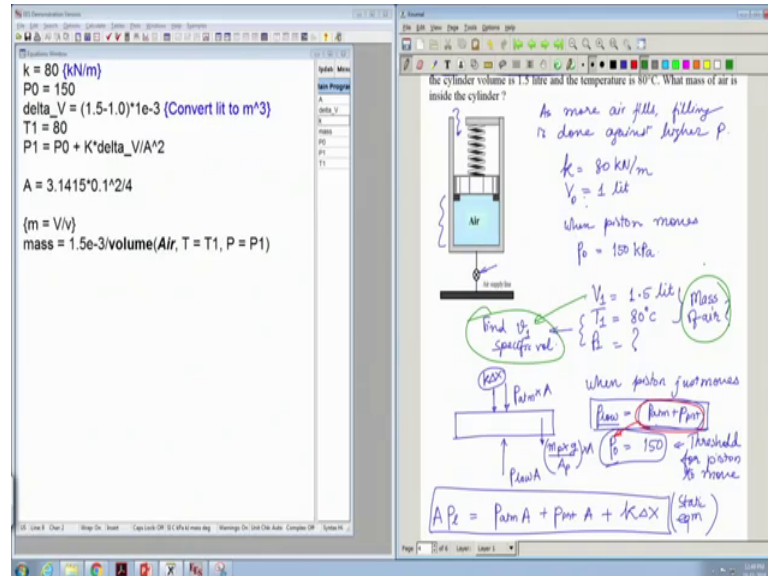 EES Demonstration Version
File Edit Search Options Calculate Tables Plots Windows Help Examples
Equations Window
k = 80 {kN/m}
P0 = 150
delta_V = (1.5-1.0)*1e-3 {Convert lit to m^3}
T1 = 80
P1 = P0 + K*delta_V/A^2
A = 3.1415*0.1^2/4
{m = V/v}
mass = 1.5e-3/volume(Air, T = T1, P = P1)
A
delta_V
k
mass
P0
P1
T1
Journal
File Edit View Page Tools Options Help
the cylinder volume is 1.5 litre and the temperature is 80°C. What mass of air is
inside the cylinder ?
Air
Air supply line
As more air fills, filling
is done against higher P.
k = 80 kN/m
V0 = 1 lit
when piston moves
P0 = 150 kPa
V1 = 1.5 lit
T1 = 80°C
P1 = ?
Mass of air
Find v1
specific vol.
kΔx
Patm × A
PlowA
when piston just moves
Plow = Patm + Ppist
P0 = 150
← Threshold
for piston
to move
APl = Patm A + Ppist A + kΔx
(Static
eqm)
Page 4 Layer: Layer 1